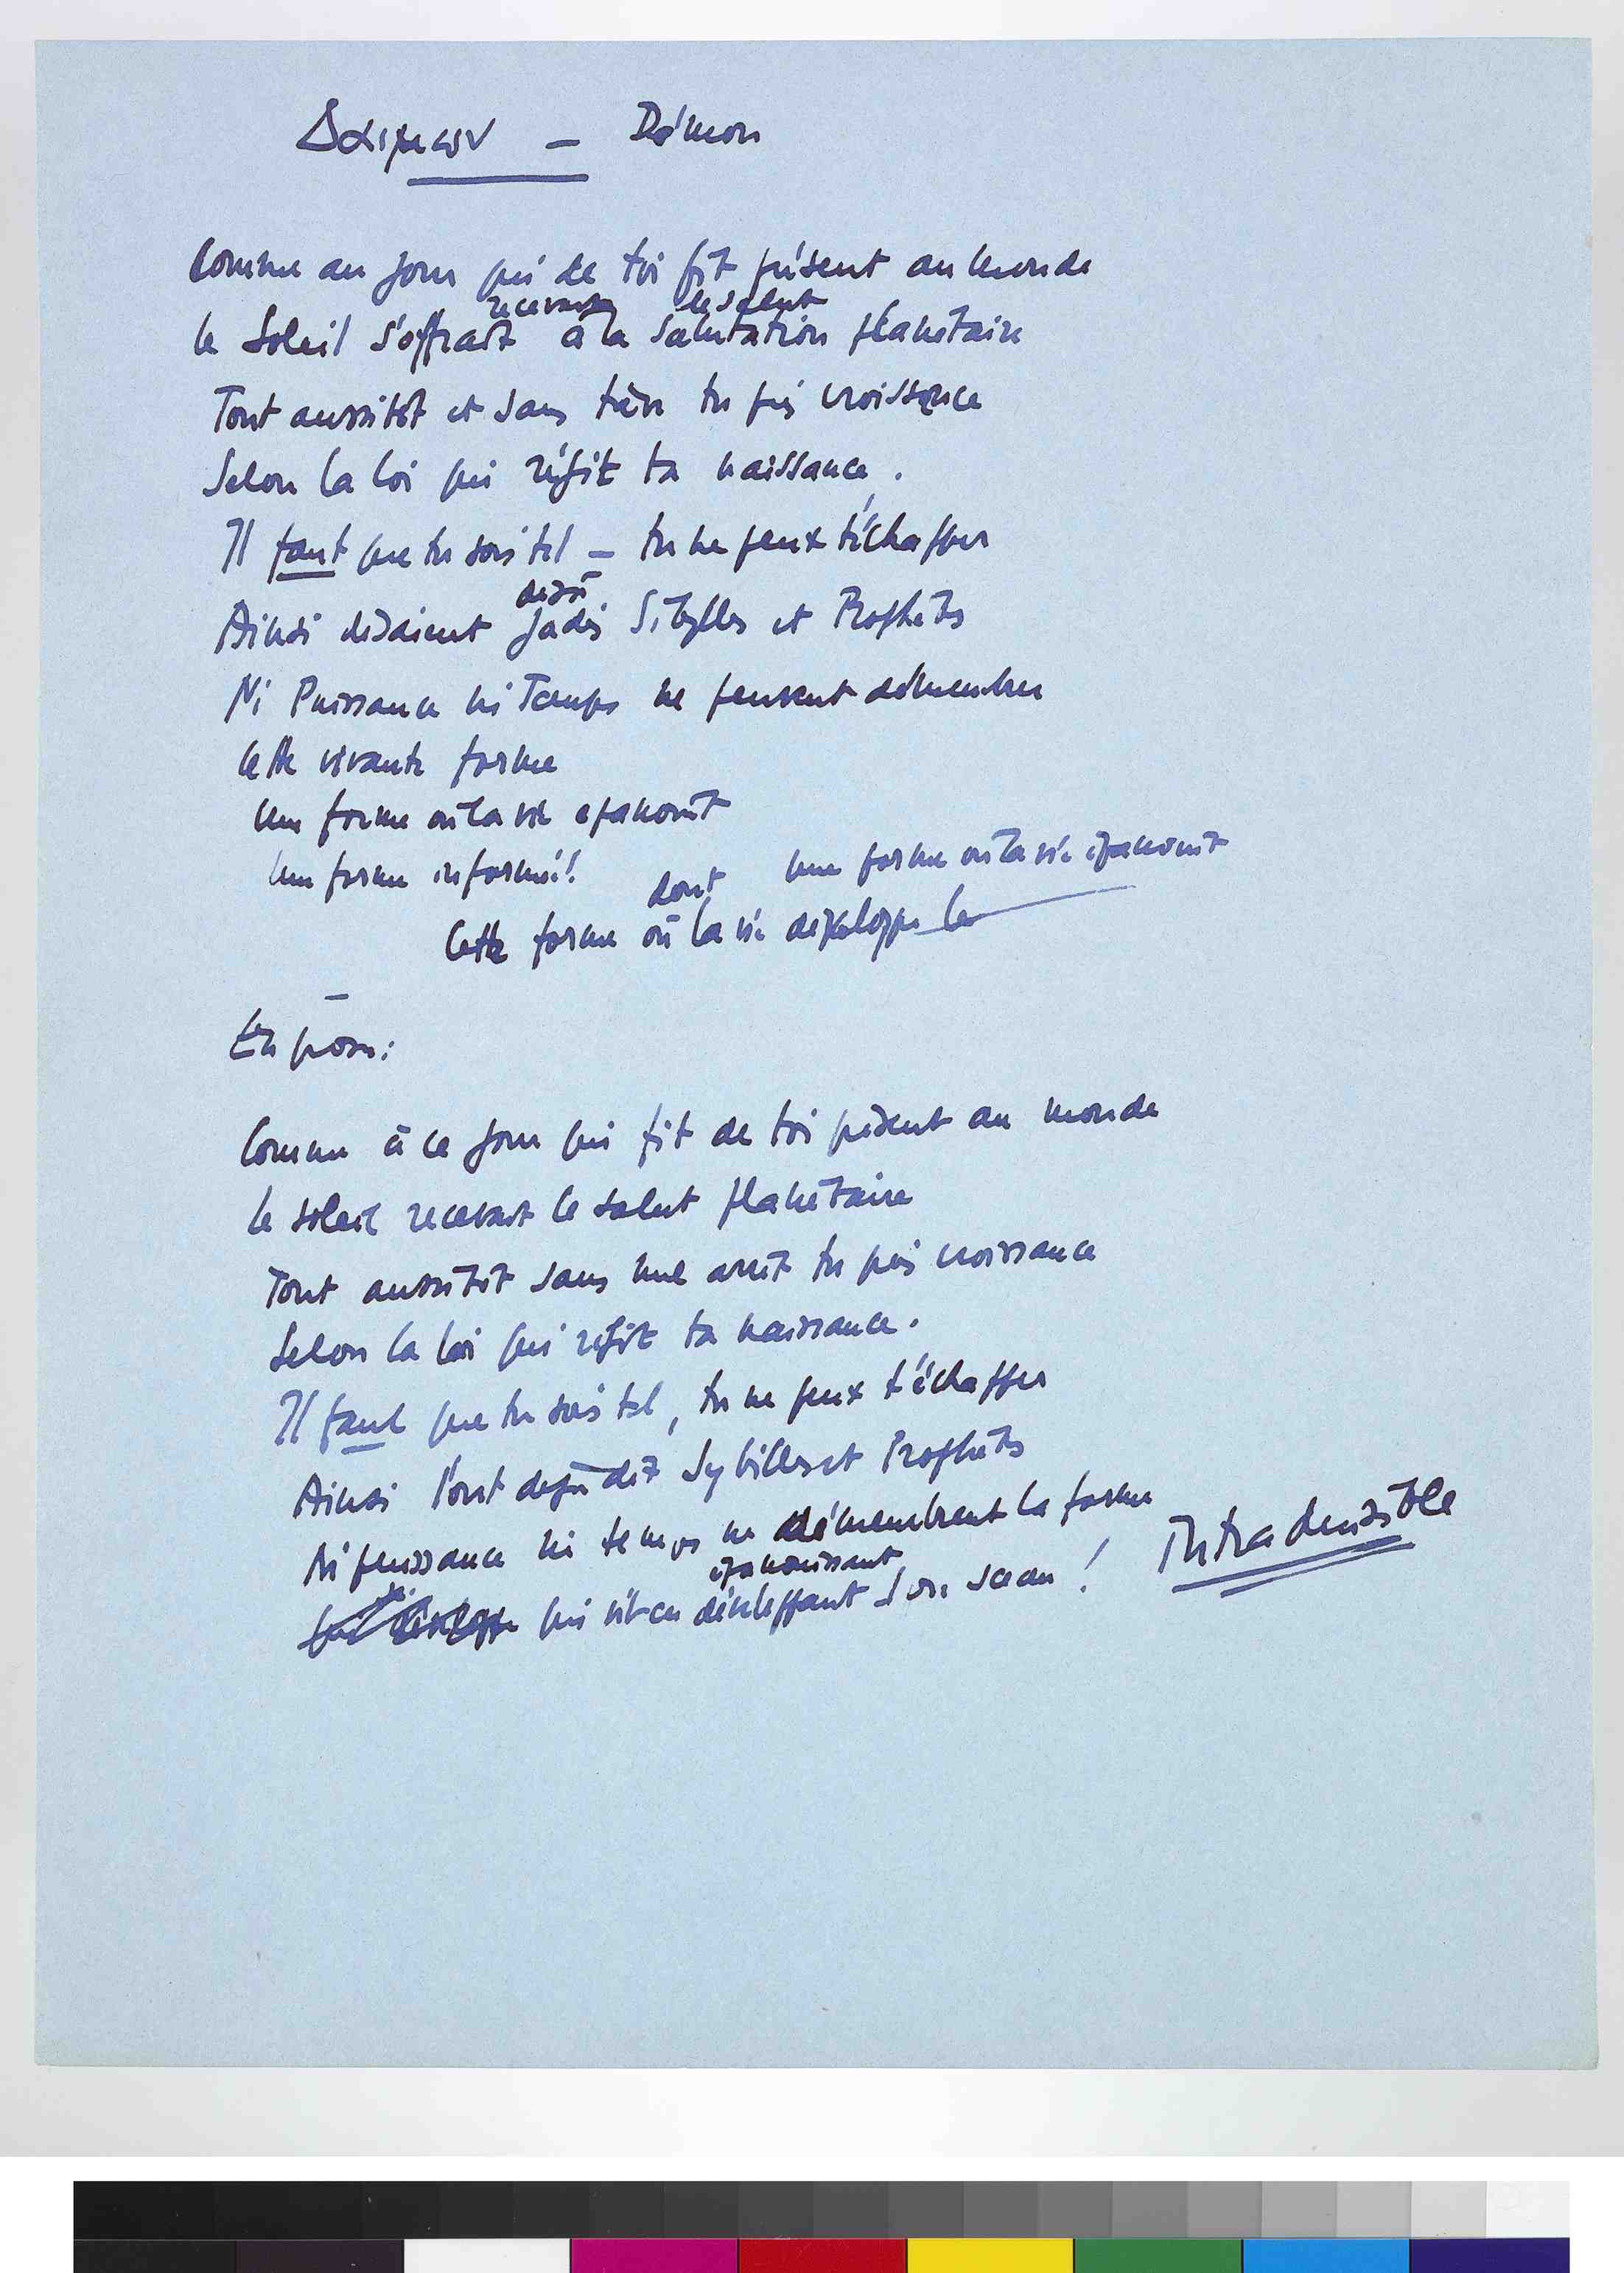 Δαιμων — Démon
Comme au jour qui de toi fit présent au monde
recevait le salut
le Soleil s'offrait à la salutation planétaire
Tout aussitôt et sans trève tu pris croissance
Selon la loi qui régit ta naissance.
Il faut que tu sois tel — tu ne peux t'échapper
déjà
Ainsi disaient jadis Sibylles et Prophètes
Ni Puissance ni Temps ne peuvent démembrer
Cette vivante forme
Une forme où la vie épanouit
Une forme informée!
dont une forme où la vie épanouit
Cette forme où la vie développe le
En prose:
Comme à ce jour qui fit de toi présent au monde
le soleil recevait le salut planétaire
Tout aussitôt sans nul arrêt tu pris croissance
Selon la loi qui régit ta naissance.
Il faut que tu sois tel, tu ne peux t'échapper
Ainsi l'ont déjà dit Sybilles et Prophètes
Ni puissance ni temps ne démembrent la forme
épanouissant
qui vit en développant son sceau! Intraduisible